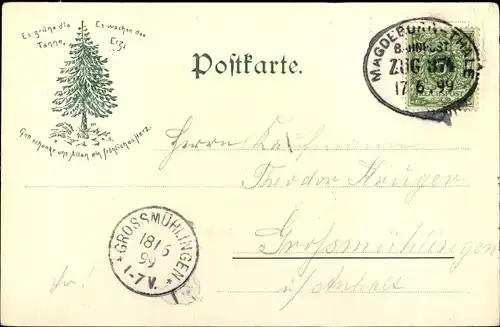 Es grüne die Tanne,
Es wachse das Erz
Gott schenke uns Allen ein fröhliches Herz.
Postkarte.
MAGDEBURG-THALE
BAHNPOST
ZUG 874
17 6 99
REICHSPOST
Herrn Kaufmann
Theodor Krüger
Grossmühlingen
i/Anhalt
GROSSMÜHLINGEN
18 6
99
1-7 V.